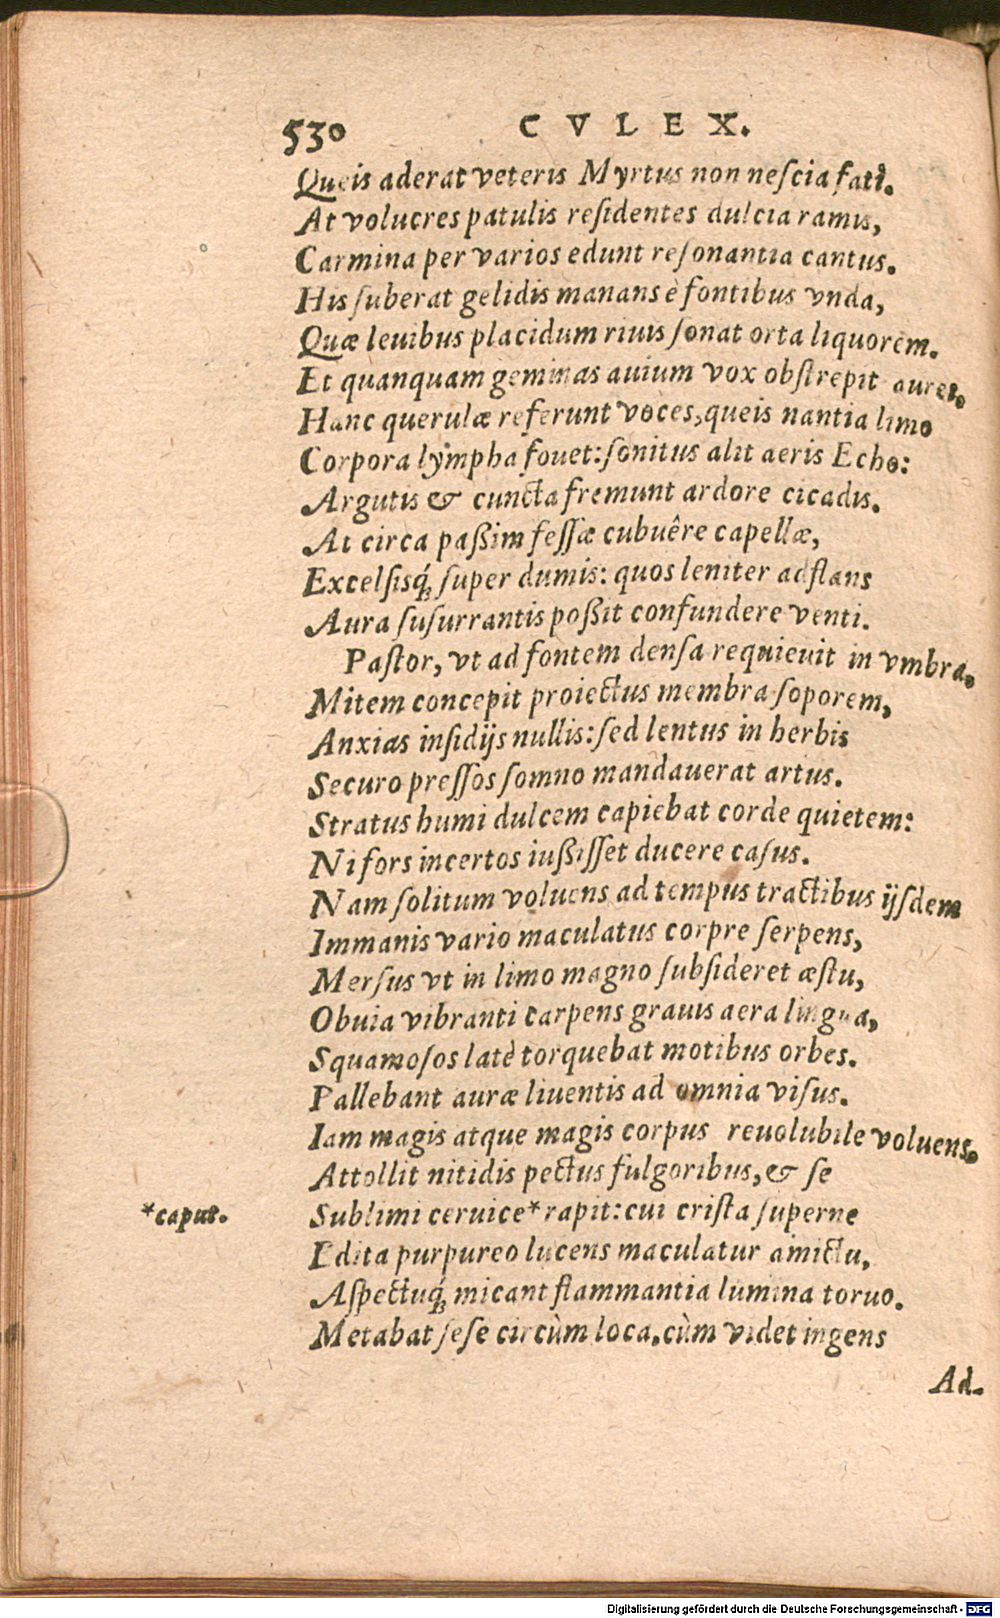 530 CVLEX.
Queis aderat veteris Myrtus non neſcia fati.
At volucres patulis reſidentes dulcia ramis,
Carmina per varios edunt reſonantia cantus.
His ſuberat gelidis manans è fontibus vnda,
Quæ leuibus placidum riuis ſonat orta liquorem.
Et quanquam geminas auium vox obſtrepit aures.
Hanc querulæ referunt voces, queis nantia limo
Corpora lympha fouet: ſonitus alit aeris Echo:
Argutis & cuncta fremunt ardore cicadis.
At circa paßim feſſæ cubuêre capellæ,
Excelſisq́; ſuper dumis: quos leniter adflans
Aura ſuſurrantis poßit confundere venti.
Paſtor, vt ad fontem denſa requieuit in vmbra.
Mitem concepit proiectus membra ſoporem,
Anxias inſidijs nullis: ſed lentus in herbis
Securo preſſos ſomno mandauerat artus.
Stratus humi dulcem capiebat corde quietem:
Ni fors incertos iußiſſet ducere caſus.
Nam ſolitum voluens ad tempus tractibus ijſdem
Immanis vario maculatus corpre ſerpens,
Merſus vt in limo magno ſubſideret æſtu,
Obuia vibranti carpens grauis aera lingua,
Squamoſos latè torquebat motibus orbes.
Pallebant auræ liuentis ad omnia viſus.
Iam magis atque magis corpus reuolubile voluens.
Attollit nitidis pectus fulgoribus, & ſe
*caput. Sublimi ceruice* rapit: cui criſta ſuperne
Edita purpureo lucens maculatur amictu,
Aſpectuq́; micant flammantia lumina toruo.
Metabat ſeſe circùm loca, cùm videt ingens
Ad.
Digitalisierung gefördert durch die Deutsche Forschungsgemeinschaft - DFG